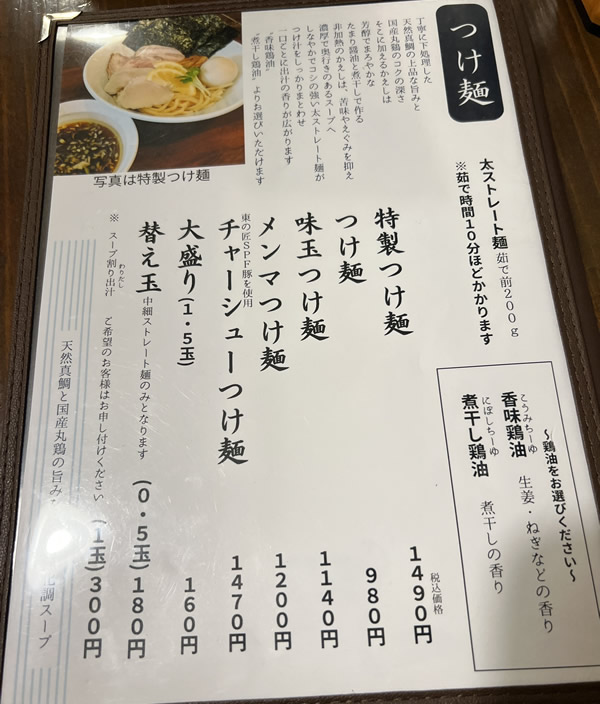 つけ麺
丁寧に下処理した
天然真鯛の上品な旨みと
国産丸鶏のコクの深さ
そこに加えるかえしは
芳醇でまろやかな
たまり醤油と煮干しで作る
非加熱のかえしは、苦味やえぐみを抑え
濃厚で奥行きのあるスープへ
しなやかでコシの強い太ストレート麺が
つけ汁をしっかりまとわせ
一口ごとに出汁の香りが広がります
“香味鶏油”
“煮干し鶏油”よりお選びいただけます
写真は特製つけ麺
太ストレート麺 茹で前200g
※茹で時間10分ほどかかります
~鶏油をお選びください~
こうみちーゆ
香味鶏油 生姜・ねぎなどの香り
にぼしちーゆ
煮干し鶏油 煮干しの香り
税込価格
特製つけ麺 1490円
つけ麺 980円
味玉つけ麺 1140円
メンマつけ麺 1200円
東の匠SPF豚を使用
チャーシューつけ麺 1470円
大盛り(1・5玉) 160円
替え玉 中細ストレート麺のみとなります (0・5玉)180円
(1玉)300円
わりだし
※ スープ割り出汁 ご希望のお客様はお申し付けください
天然真鯛と国産丸鶏の旨み
調スープ